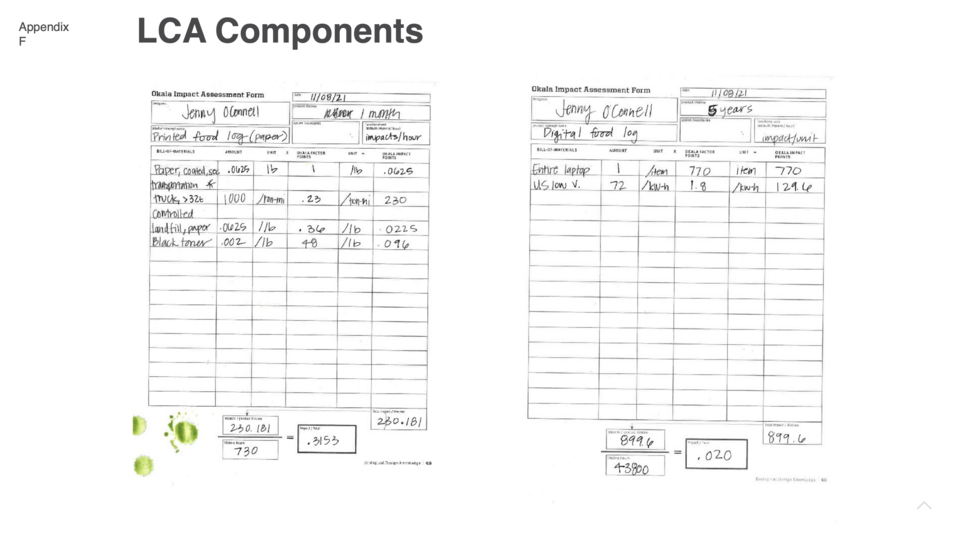 Appendix
F
LCA Components
Okala Impact Assessment Form
11/08/21
Jenny O'Connell
1 month
Printed food log (paper)
impacts/hour
BILL-OF-MATERIALS AMOUNT UNIT X OKALA FACTOR POINTS UNIT = OKALA IMPACT POINTS
Paper, coated, .0625 lb 1 /lb .0625
transportation *
truck, >32t 1000 /ton-mi .23 /ton-mi 230
Controlled
landfill, paper .0625 /lb .36 /lb .0225
Black toner .002 /lb 48 /lb .096
230.181
230.181
= .3153
730
Okala Impact Assessment Form
11/08/21
Jenny O'Connell
5 years
Digital food log
impact/unit
BILL-OF-MATERIALS AMOUNT UNIT X OKALA FACTOR POINTS UNIT = OKALA IMPACT POINTS
Entire laptop 1 /item 770 item 770
US low v. 72 /kw-h 1.8 /kw-h 129.6
899.6
899.6
= .020
43800